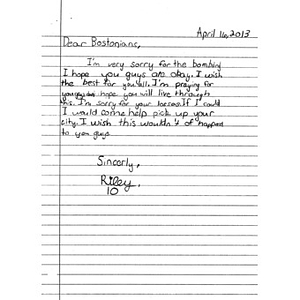 April 16, 2013
Dear Bostonians,
I'm very sorry for the bombing
I hope you guys are okay. I wish
the best for you all. I'm praying for
you guys. hope you will live through
this. I'm sorry for your losses. If I could
I would come help pick up your
city. I wish this wouldn't of happed
to you guys
Sincerly,
Riley,
10